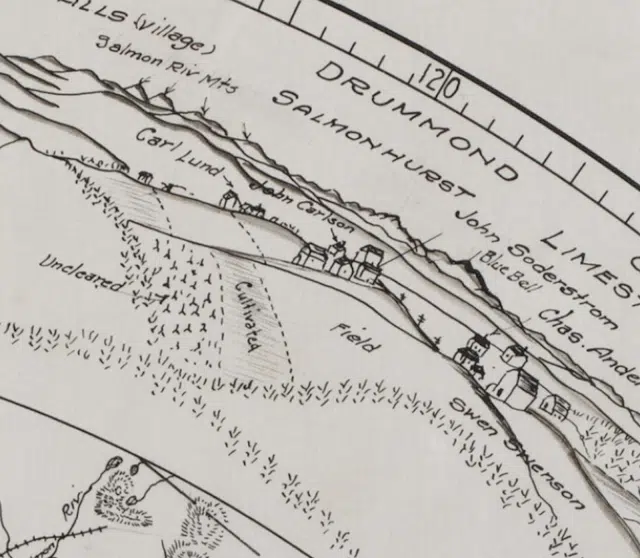 ILLS (village)
Salmon Riv Mts
120
DRUMMOND
SALMONHURST
LIMES
Carl Lund
John Carlson
John Soderstrom
Blue Bell
Chas. Ande
Uncleared
Cultivated
Field
Swen Swenson
Riv.